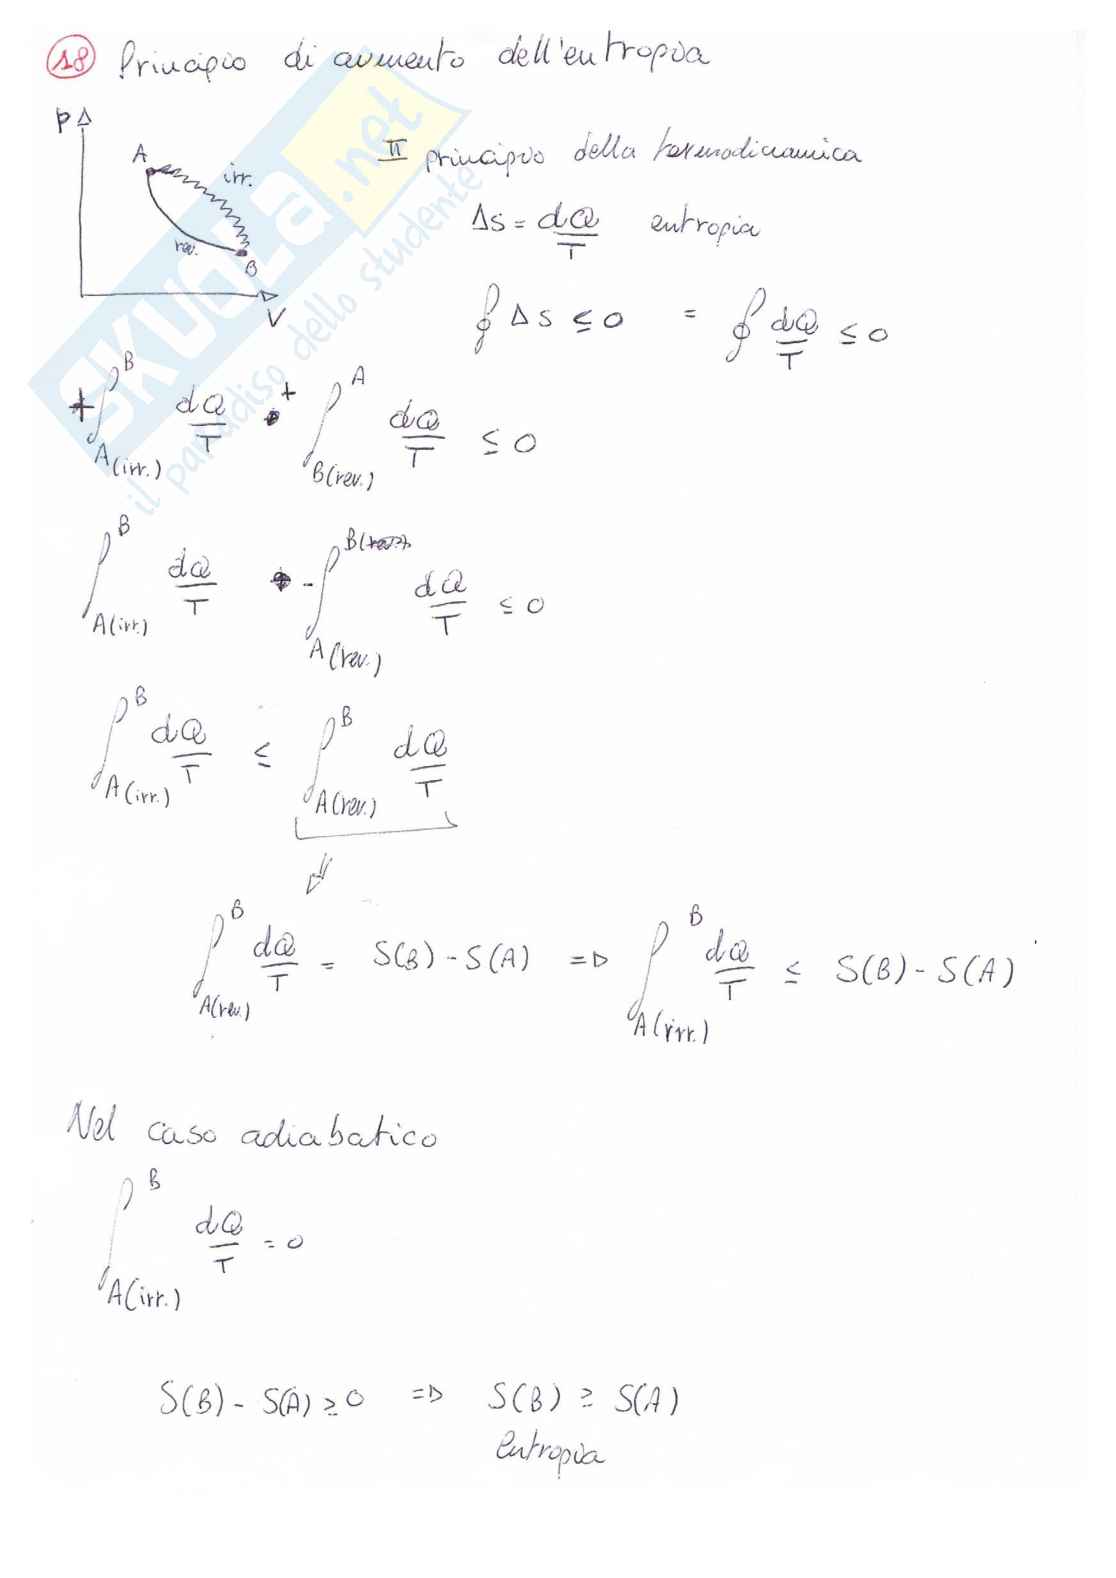 18 Principio di aumento dell'entropia
P
A
irr.
rev.
B
V
II principio della termodinamica
ΔS = dQ/T entropia
∮ ΔS ≤ 0 = ∮ dQ/T ≤ 0
+ ∫_A(irr.)^B dQ/T + ∫_B(rev.)^A dQ/T ≤ 0
∫_A(irr.)^B dQ/T - ∫_A(rev.)^B dQ/T ≤ 0
∫_A(irr.)^B dQ/T ≤ ∫_A(rev.)^B dQ/T
⇓
∫_A(rev.)^B dQ/T = S(B) - S(A) ⇒ ∫_A(irr.)^B dQ/T ≤ S(B) - S(A)
Nel caso adiabatico
∫_A(irr.)^B dQ/T = 0
S(B) - S(A) ≥ 0 ⇒ S(B) ≥ S(A)
entropia
SKUOLA.net
il paradiso dello studente